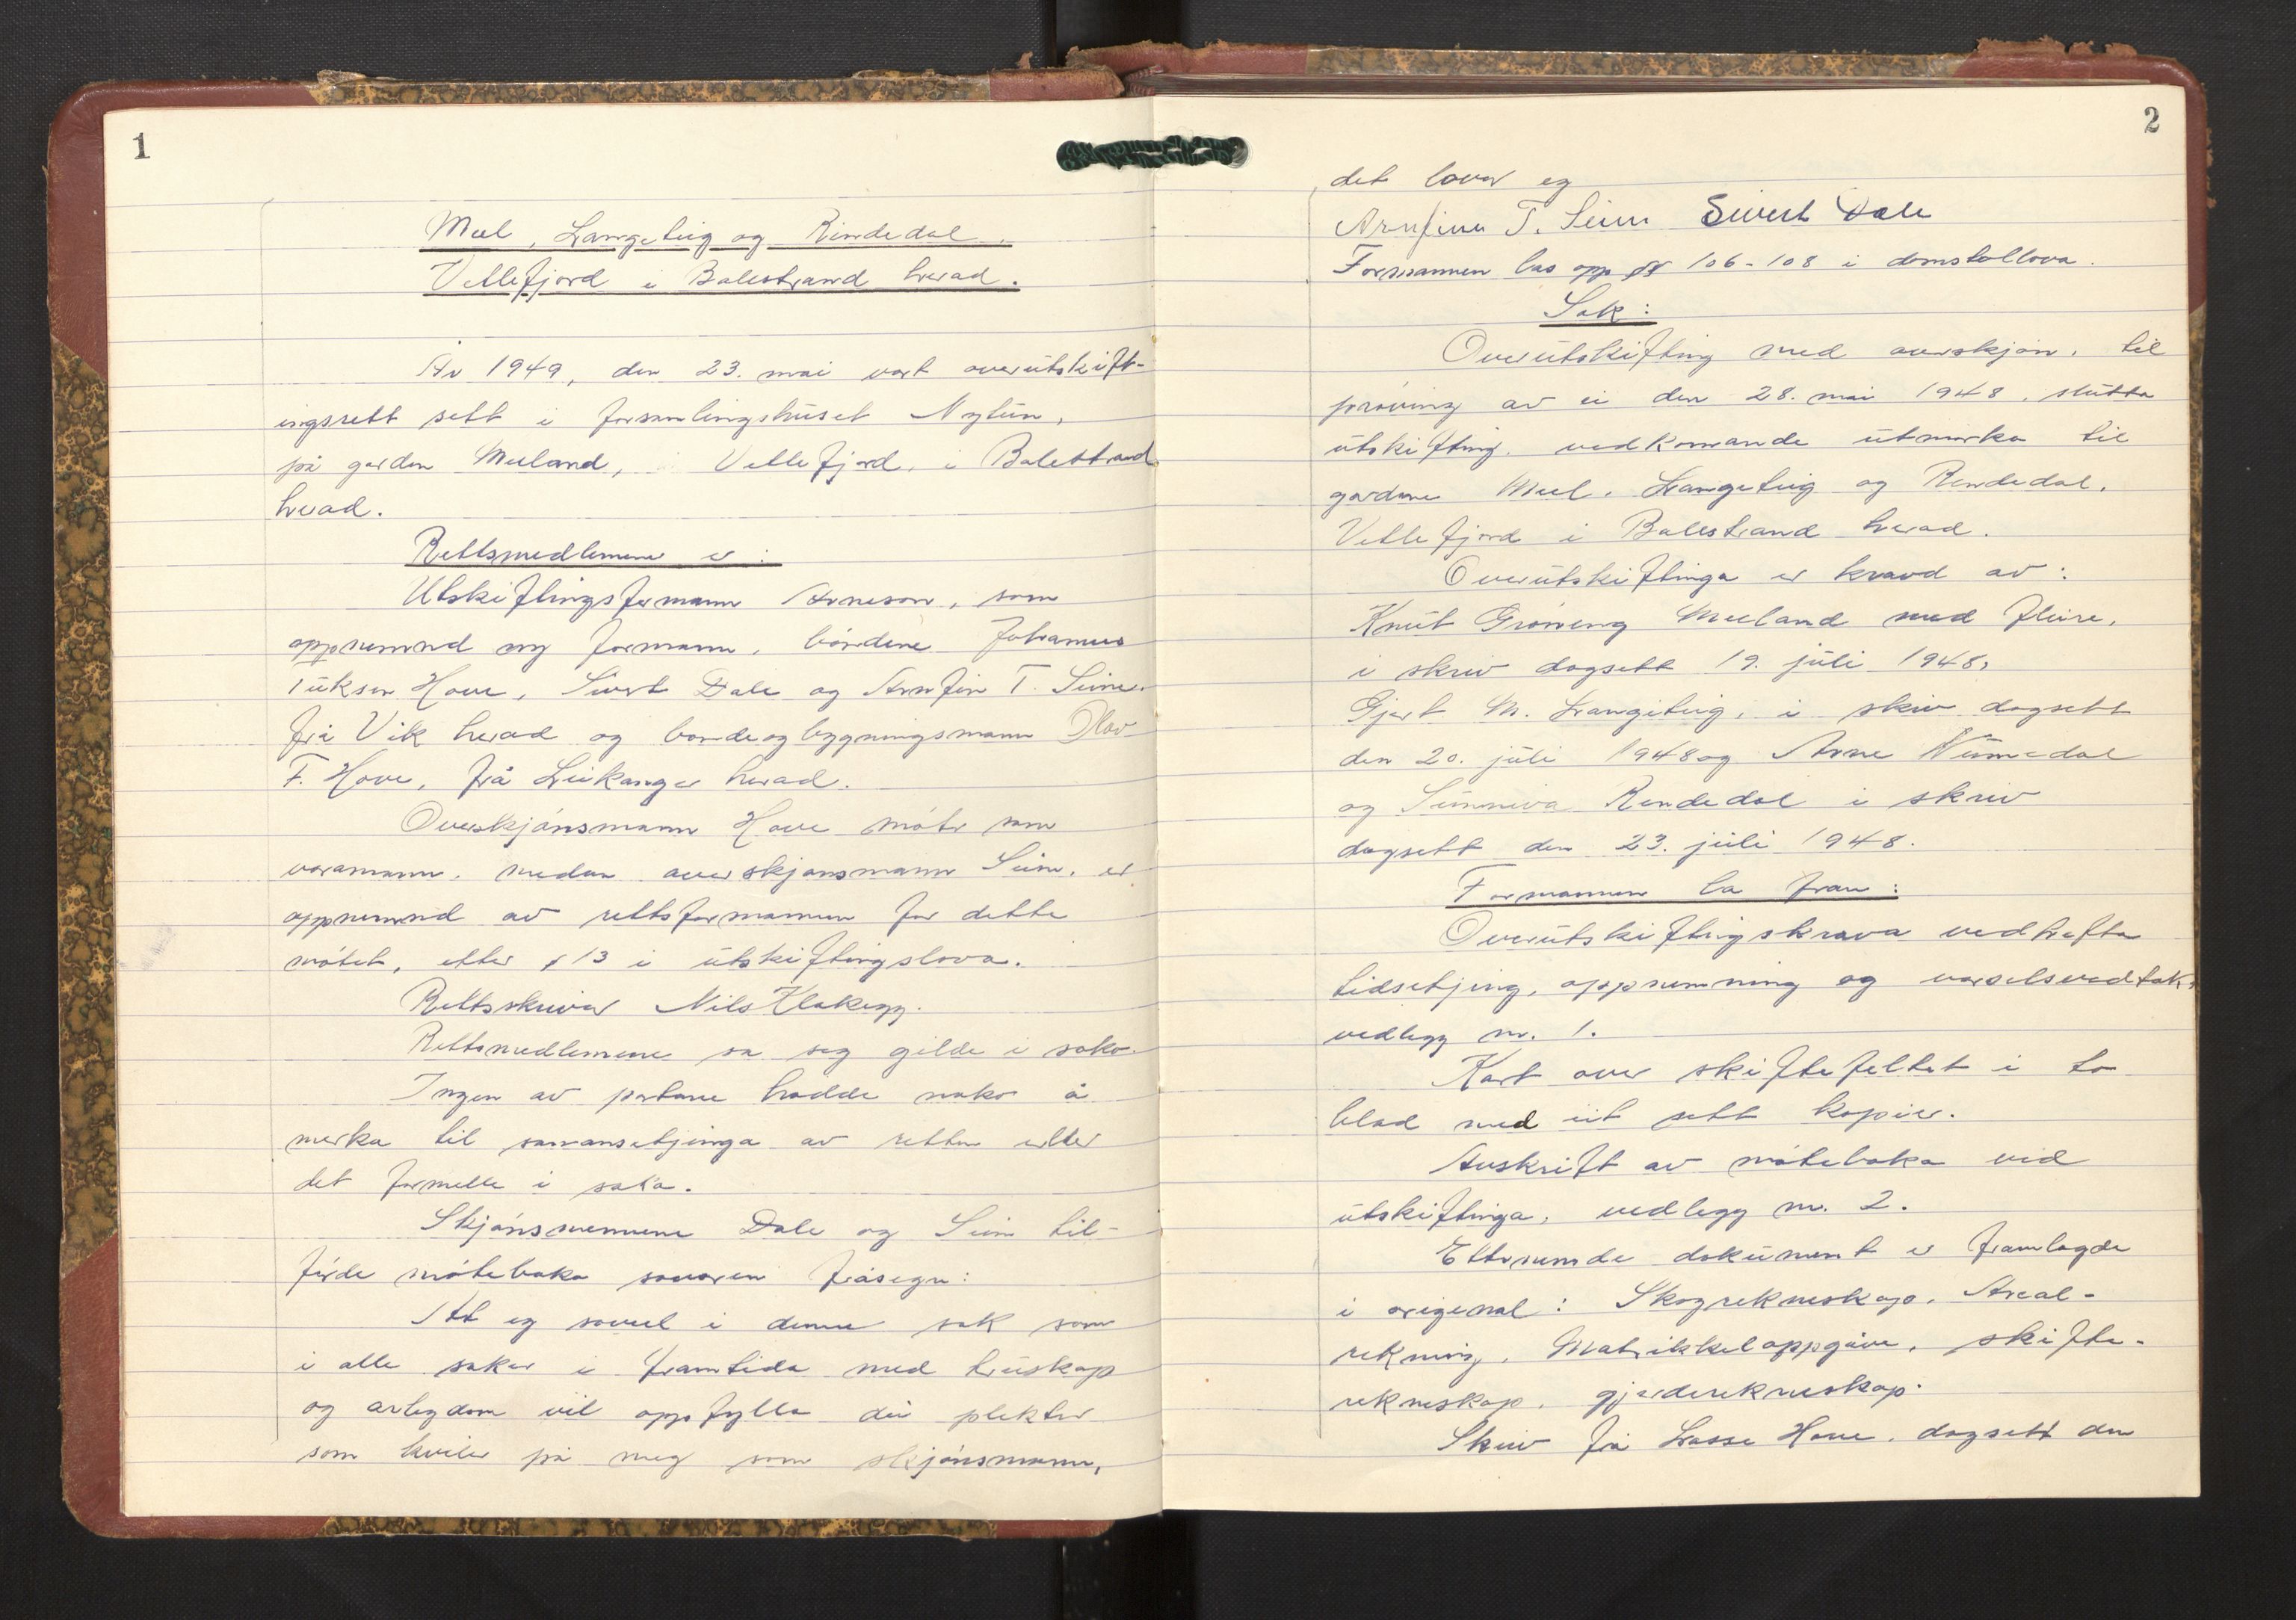 1
Mel, Langeteig og Rendedal.
Vetlefjord i Balestrand herad.
År 1949, den 23. mai vart overutskift-
ingsrett sett i forsamlingshuset Nytun,
på garden Meland, i Vetlefjord, i Balestrand
herad.
Rettsmedlemene er:
Utskiftingsformann Arneson, som
oppnemnd ny formann, bøndene Johannes
Hove, Sivert Dale og Arnfin T. Seim.
frå Vik herad og bonde og bygningsmann Olav
F. Hove, frå Leikanger herad.
Overskjønsmann Hove møter som
varamann, medan overskjønsmann Seim, er
oppnemnd av rettsformannen for dette
møtet, etter § 13 i utskiftingslova.
Rettsskrivar Nils Klakegg.
Rettsmedlemene sa seg gilde i saka.
Ingen av partane hadde noko å
merka til samansetjinga av retten eller
det formelle i saka.
Skjønsmennene Dale og Seim til-
førde møteboka sovoren fråsegn:
At eg sovel i denne sak som
i alle saker i framtida med truskap
og ærlegdom vil oppfylla dei plikter
som kviler på meg som skjønsmann,
2
det lovar eg
Arnfinn T. Seim Sivert Dale
Formannen las opp §§ 106-108 i domstollova.
Sak:
Overutskifting med overskjøn, til
prøving av ei den 28. mai 1948, slutta
utskifting, vedkomande utmarka til
gardane Mel, Langeteig og Rendedal,
Vetlefjord i Balestrand herad.
Overutskiftinga er kravd av:
Knut Grøneng Meland med fleire,
i skriv dagsett 19. juli 1948,
Gjert M. Langeteig, i skriv dagsett
den 20. juli 1948 og Arne Numedal
og Sunniva Rendedal i skriv
dagsett den 23. juli 1948.
Formannen la fram:
Overutskiftingskrava vedhefta
tidsetjing, oppnemning og varselsvedtak,
vedlegg nr. 1.
Kart over skiftefeltet i to
blad med eit sett kopier.
Avskrift av møteboka vid
utskiftinga, vedlegg nr. 2.
Etternemde dokument er framlagde
i original: Skogrekneskap, Areal-
rekning, Matrikkeloppgåve, skifte-
rekneskap, gjerderekneskap.
Skriv frå Lasse Hove, dagsett den